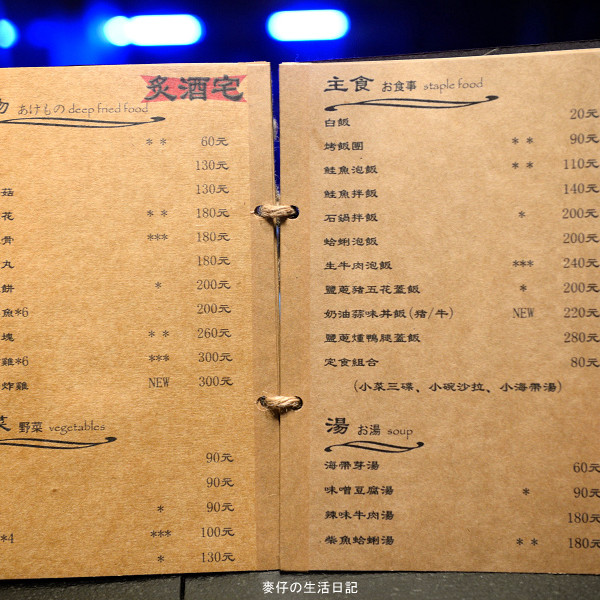 炙酒宅
物 あけもの deep fried food
** 60元
130元
菇 130元
花 ** 180元
骨 *** 180元
丸 180元
餅 * 200元
魚*6 200元
塊 ** 260元
雞*6 *** 300元
炸雞 NEW 300元
菜 野菜 vegetables
90元
90元
* 90元
*4 *** 100元
* 130元
主食 お食事 staple food
白飯 20元
烤飯團 ** 90元
鮭魚泡飯 ** 110元
鮭魚拌飯 140元
石鍋拌飯 * 200元
蛤蜊泡飯 200元
生牛肉泡飯 *** 240元
鹽蔥豬五花蓋飯 * 200元
奶油蒜味丼飯(豬/牛) NEW 220元
鹽蔥燻鴨腿蓋飯 280元
定食組合 80元
(小菜三碟、小碗沙拉、小海帶湯)
湯 お湯 soup
海帶芽湯 60元
味噌豆腐湯 * 90元
辣味牛肉湯 180元
柴魚蛤蜊湯 ** 180元
麥仔の生活日記